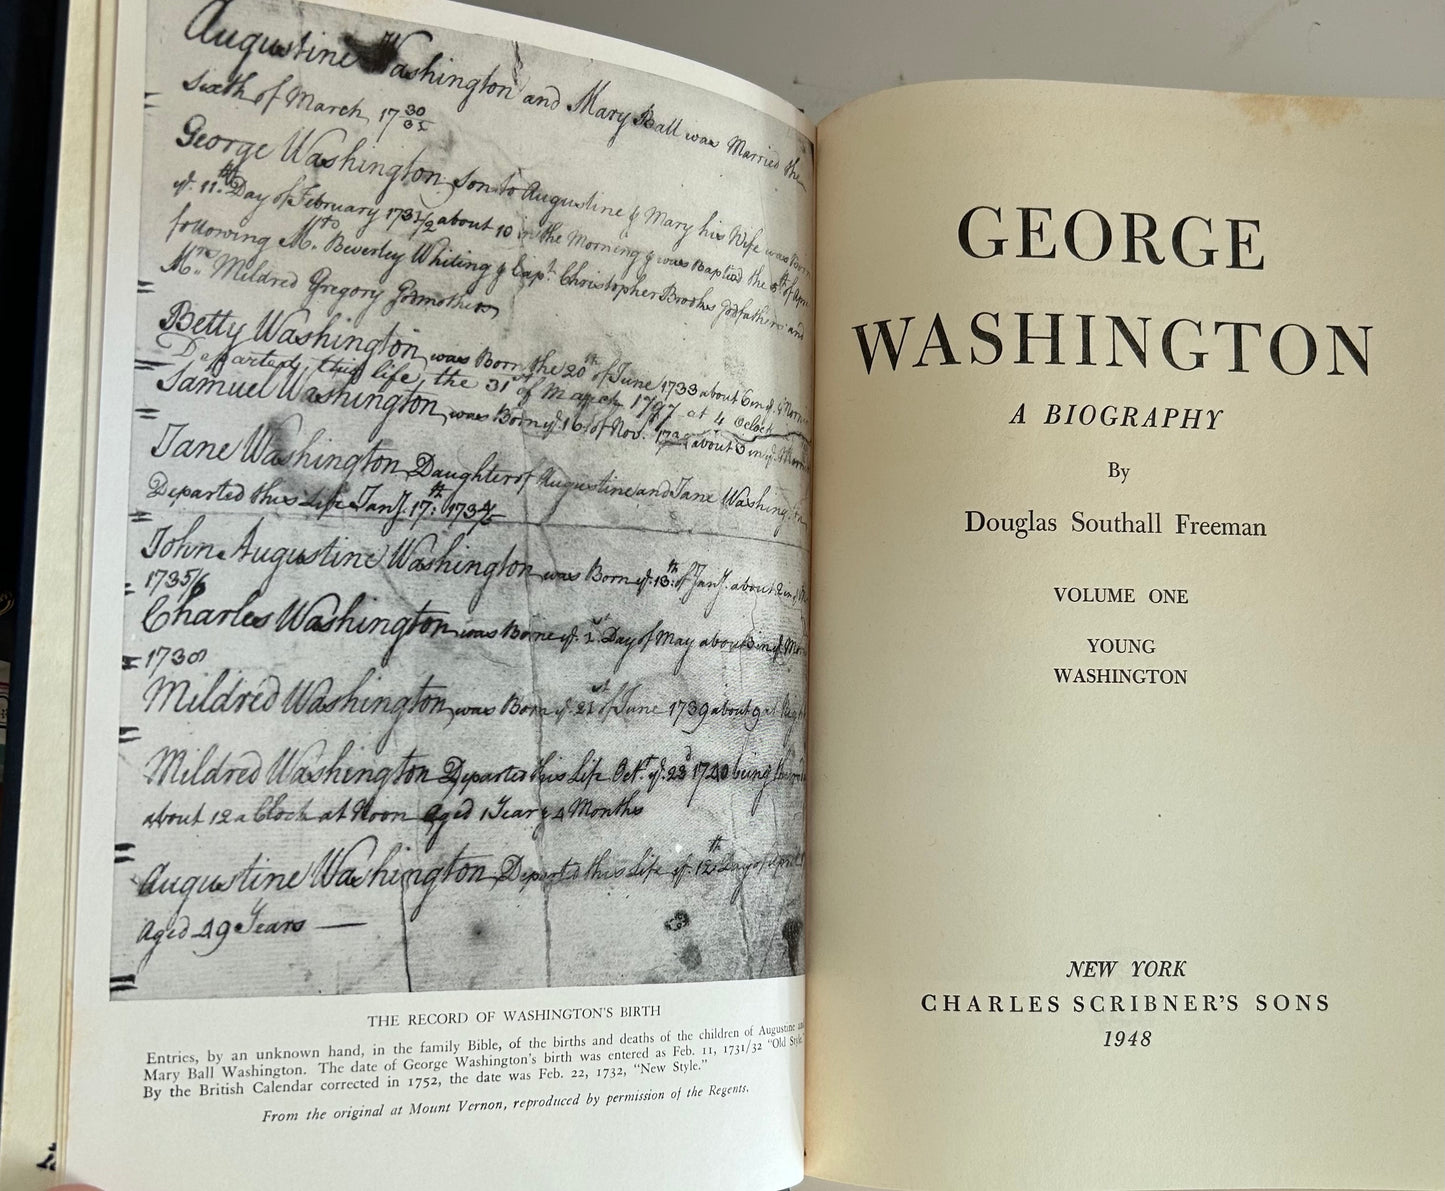 Augustine Washington and Mary Ball was Married the
Sixth of March 17 30/31
George Washington Son to Augustine & Mary his Wife was Born
ye. 11th. Day of February 1731/2 about 10 in the Morning & was Baptiz'd the 5th of Apr
following Mr. Beverley Whiting & Capt. Christopher Brooks Godfathers and
Mrs. Mildred Gregory Godmother
Betty Washington was Born the 20th of June 1733 about 6 in ye Morn
Departed this life the 31st of March 1797 at 4 Oclock
Samuel Washington was Born ye 16 of Novr. about 3 in ye. Morn
Jane Washington Daughter of Augustine and Jane Washing
Departed this Life Jany. 17th: 1734/5
John Augustine Washington was Born ye. 13th: of Jany. about 2 in
1735/6
Charles Washington was Borne ye. Day of May about 3 in ye. Mor
1738
Mildred Washington was Born ye. 21st of June 1739 about 9 at
Mildred Washington Departed this Life Octr. ye. 23d 1740 being
about 12 a Clock at Noon Aged 1 Year & 4 Months
Augustine Washington Departed this Life ye. 12th Day of
Aged 49 Years
THE RECORD OF WASHINGTON'S BIRTH
Entries, by an unknown hand, in the family Bible, of the births and deaths of the children of Augustine and
Mary Ball Washington. The date of George Washington's birth was entered as Feb. 11, 1731/32 "Old Style."
By the British Calendar corrected in 1752, the date was Feb. 22, 1732, "New Style."
From the original at Mount Vernon, reproduced by permission of the Regents.
GEORGE
WASHINGTON
A BIOGRAPHY
By
Douglas Southall Freeman
VOLUME ONE
YOUNG
WASHINGTON
NEW YORK
CHARLES SCRIBNER'S SONS
1948